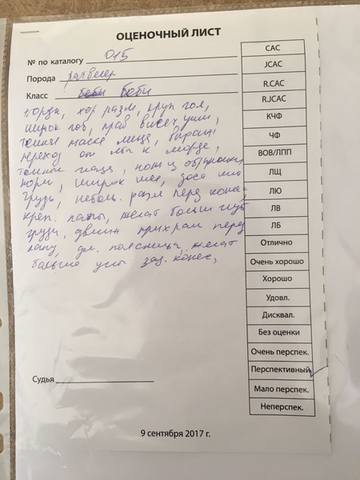 ОЦЕНОЧНЫЙ ЛИСТ
№ по каталогу 015
Порода ралвелер
Класс беби
хор разм, круп гол,
широк лоб, прав висяч уши,
маска лица, хорош
переход от лба к морде,
темные глаза, ножниц
норм, широк шея,
грудь, небольш. разм перед конеч
креп. лапы, желат больш глуб
груди, движ перед
лапу, дл. поясница, желат
больше углы зад. конеч,
Судья
9 сентября 2017 г.
CAC
JCAC
R.CAC
R.JCAC
КЧФ
ЧФ
ВОВ/ЛПП
ЛЩ
ЛЮ
ЛВ
ЛБ
Отлично
Очень хорошо
Хорошо
Удовл.
Дисквал.
Без оценки
Очень перспек.
Перспективный
Мало перспек.
Неперспек.